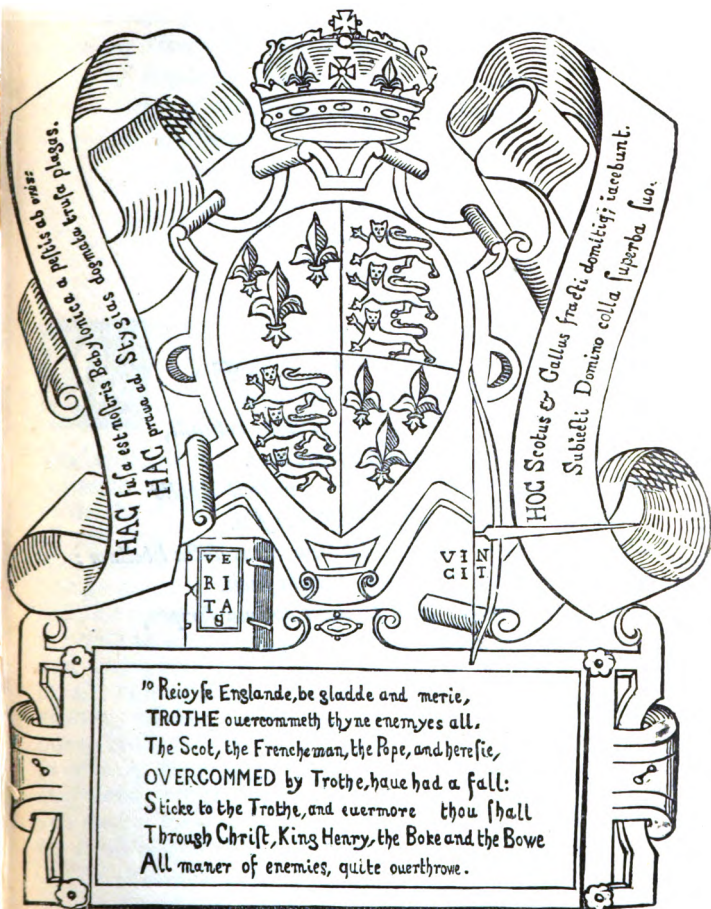 HAC fuſa eſt noſtris Babylonica a peſtis ab oris:
HAC praua ad Stygias dogmata truſa plagas.
HOC Scotus & Gallus fracti domitiq; iacebunt.
Subiecti Domino colla ſuperba ſuo.
VE
RI
TA
S
VIN
CIT
10 Reioyſe Englande, be gladde and merie,
TROTHE ouercommeth thyne enemyes all.
The Scot, the Frencheman, the Pope, and hereſie,
OVERCOMMED by Trothe, haue had a fall:
Sticke to the Trothe, and euermore thou ſhall
Through Chriſt, King Henry, the Boke and the Bowe
All maner of enemies, quite ouerthrowe.